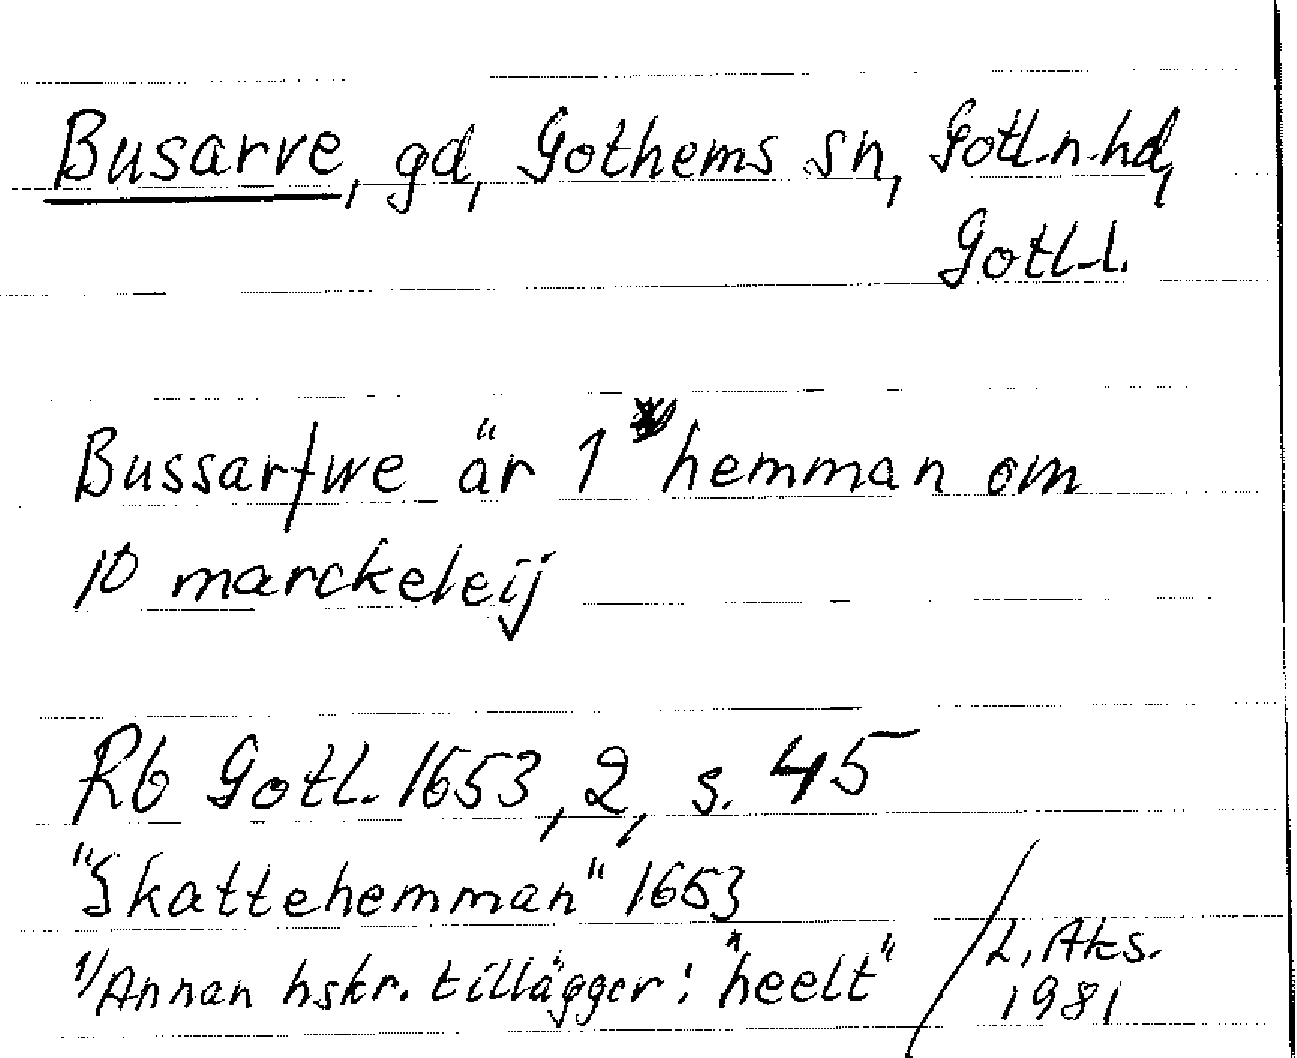 Busarve, gd, Gothems sn, Gotl.n.hd,
Gotl.l.
Bussarfwe är 1 hemman om
10 marckeleij
Rb Gotl. 1653, 2, s. 45
"Skattehemman" 1653
1/ Annan hskr. tillägger: "heelt"
L. Aks.
1981